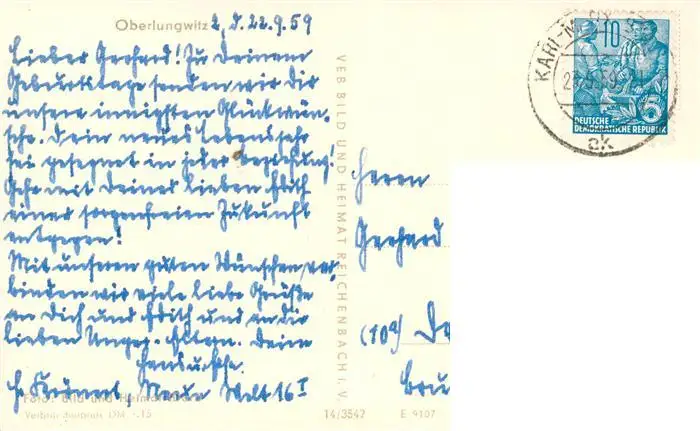 Oberlungwitz, d. 22.9.59
Lieber Gerhard! Zu Deinem
Geburtstage senden wir dir
unsere innigsten Glückwün-
sche. Dein neues Lebensjahr
sei gesegnet in jeder Beziehung!
Gehe mit Deiner lieben Edith
einer sorgenfreien Zukunft
entgegen!
Mit unseren guten Wünschen ver-
binden wir viele liebe Grüße
an Dich und Edith und an die
lieben Eltern. Deine
Welt 16 I
Foto: Bild und Heimat
VEB BILD UND HEIMAT REICHENBACH I. V.
14/3542 E 9107
KARL-M
10
DEUTSCHE
DEMOKRATISCHE REPUBLIK
5
ak
Herrn
Gerhard
(10a)